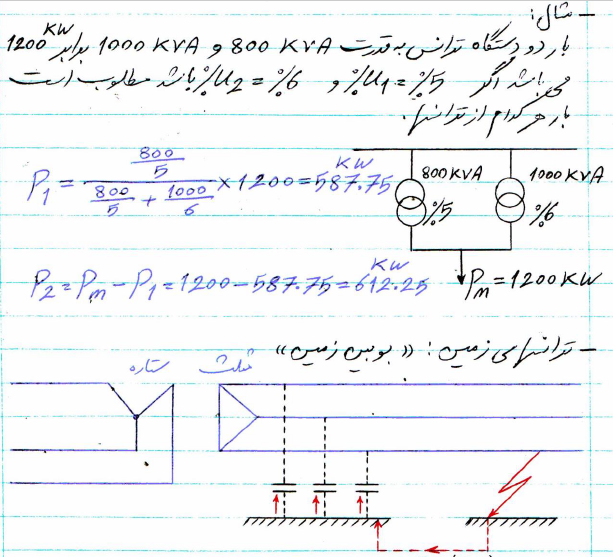 - مثال:
بار دو دستگاه ترانس به قدرت 800 KVA و 1000 KVA برابر 1200 KW
می باشد اگر %u1 = %5 و %u2 = %6 باشد مطلوب است
بار هر کدام از ترانسها.
P1 = (800/5) / (800/5 + 1000/6) × 1200 = 587.75 KW
800 KVA
%5
1000 KVA
%6
P2 = Pm - P1 = 1200 - 587.75 = 612.25 KW
Pm = 1200 KW
- ترانسهای زمین: «بوبین زمین»
ستاره
مثلث